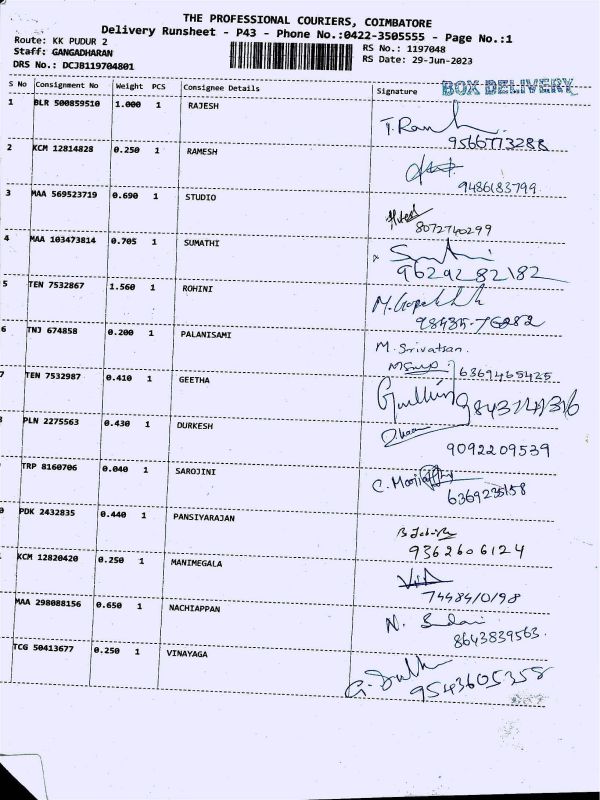 THE PROFESSIONAL COURIERS, COIMBATORE
Delivery Runsheet - P43 - Phone No.:0422-3505555 - Page No.:1
Route: KK PUDUR 2
RS No.: 1197048
Staff: GANGADHARAN
RS Date: 29-Jun-2023
DRS No.: DCJB119704801
S No Consignment No Weight PCS Consignee Details Signature BOX DELIVERY
1 BLR 500859510 1.000 1 RAJESH
9566773288
2 KCM 12814828 0.250 1 RAMESH
9486183799
3 MAA 569523719 0.690 1 STUDIO
8072740299
4 MAA 103473814 0.705 1 SUMATHI
9629282182
5 TEN 7532867 1.560 1 ROHINI
98435-76282
6 TNJ 674858 0.200 1 PALANISAMI M. Srivatsan.
6369465425
7 TEN 7532987 0.410 1 GEETHA
PLN 2275563 0.430 1 DURKESH
9092209539
TRP 8160706 0.040 1 SAROJINI
6369235158
PDK 2432835 0.440 1 PANSIYARAJAN
9362606124
KCM 12820420 0.250 1 MANIMEGALA
MAA 298088156 0.650 1 NACHIAPPAN
8643839563
TCG 50413677 0.250 1 VINAYAGA
9543605358